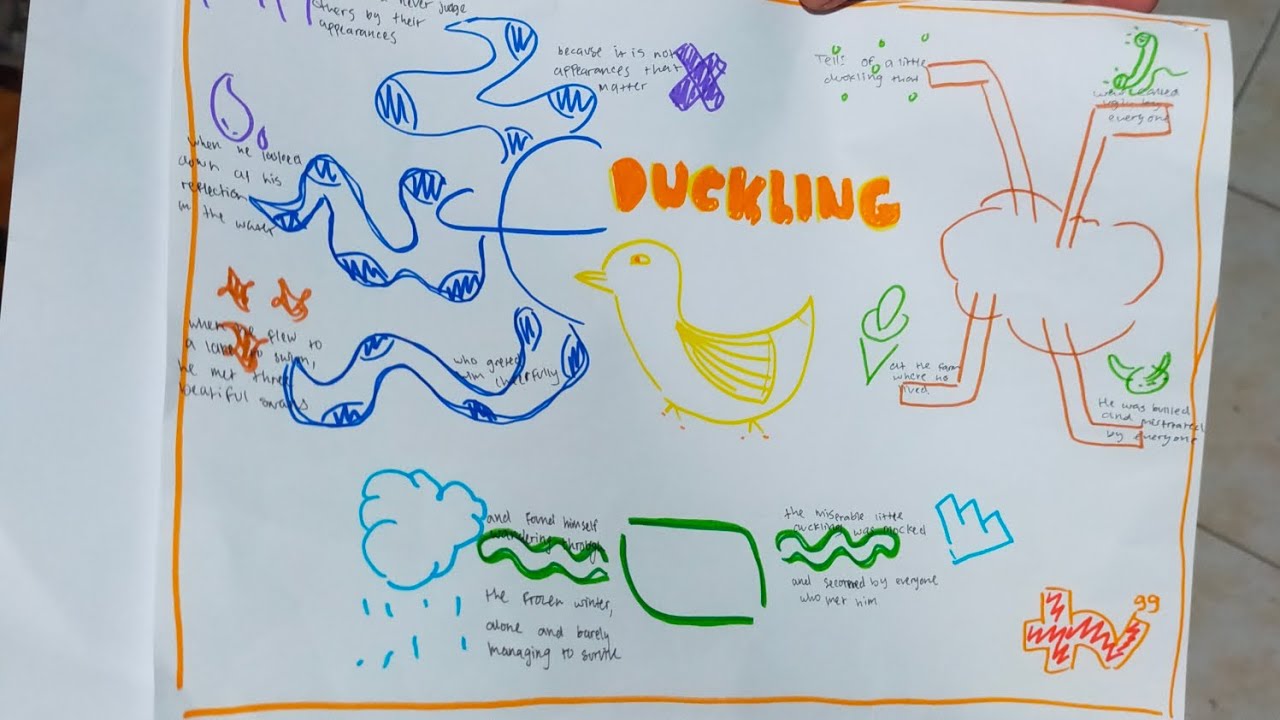 never judge
others by their
appearances
because it is not
appearances that
matter
Tells of a little
duckling that
was
ugly by
everyone
DUCKLING
when he looked
down at his
reflection
in the water
when he flew to
a lake to swim,
he met three
beatiful swans
who greeted
him cheerfully
at the farm
where he
lived
He was bullied
and
by everyone
and found himself
wandering through
the frozen winter,
alone and barely
managing to survive
the miserable little
duckling was mocked
and scorned by everyone
who met him
99